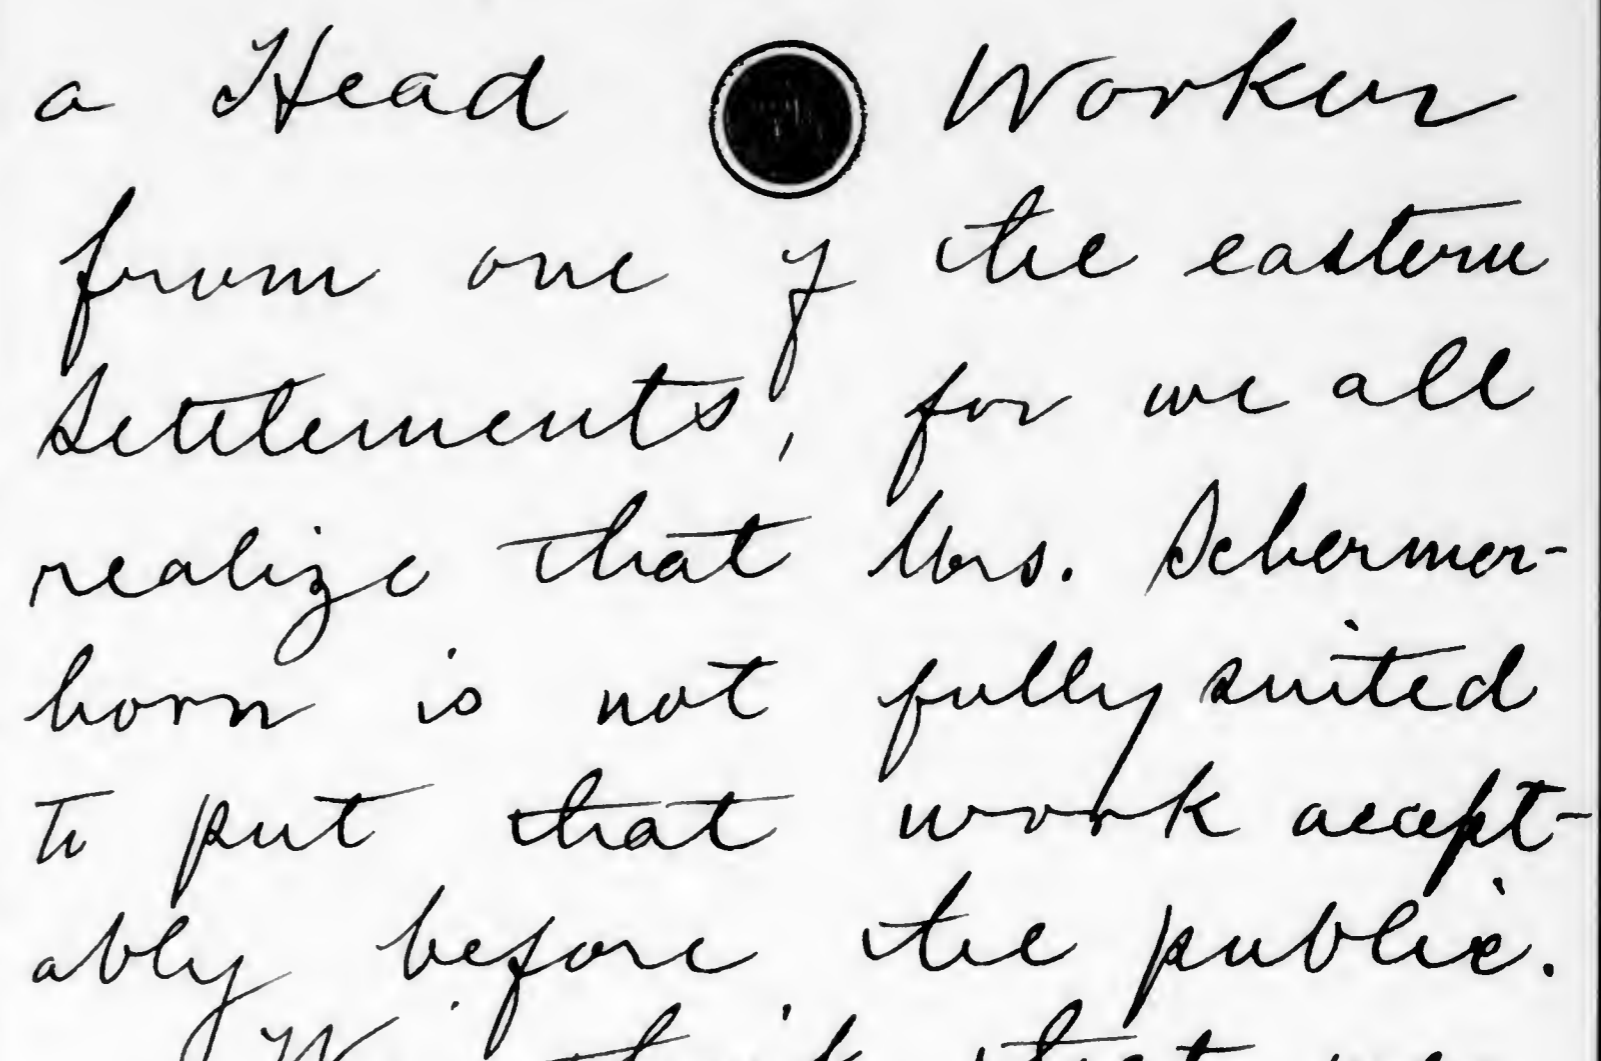 a Head Worker
from one of the eastern
Settlements, for we all
realize that Mrs. Schermer-
horn is not fully suited
to put that work accept-
ably before the public.